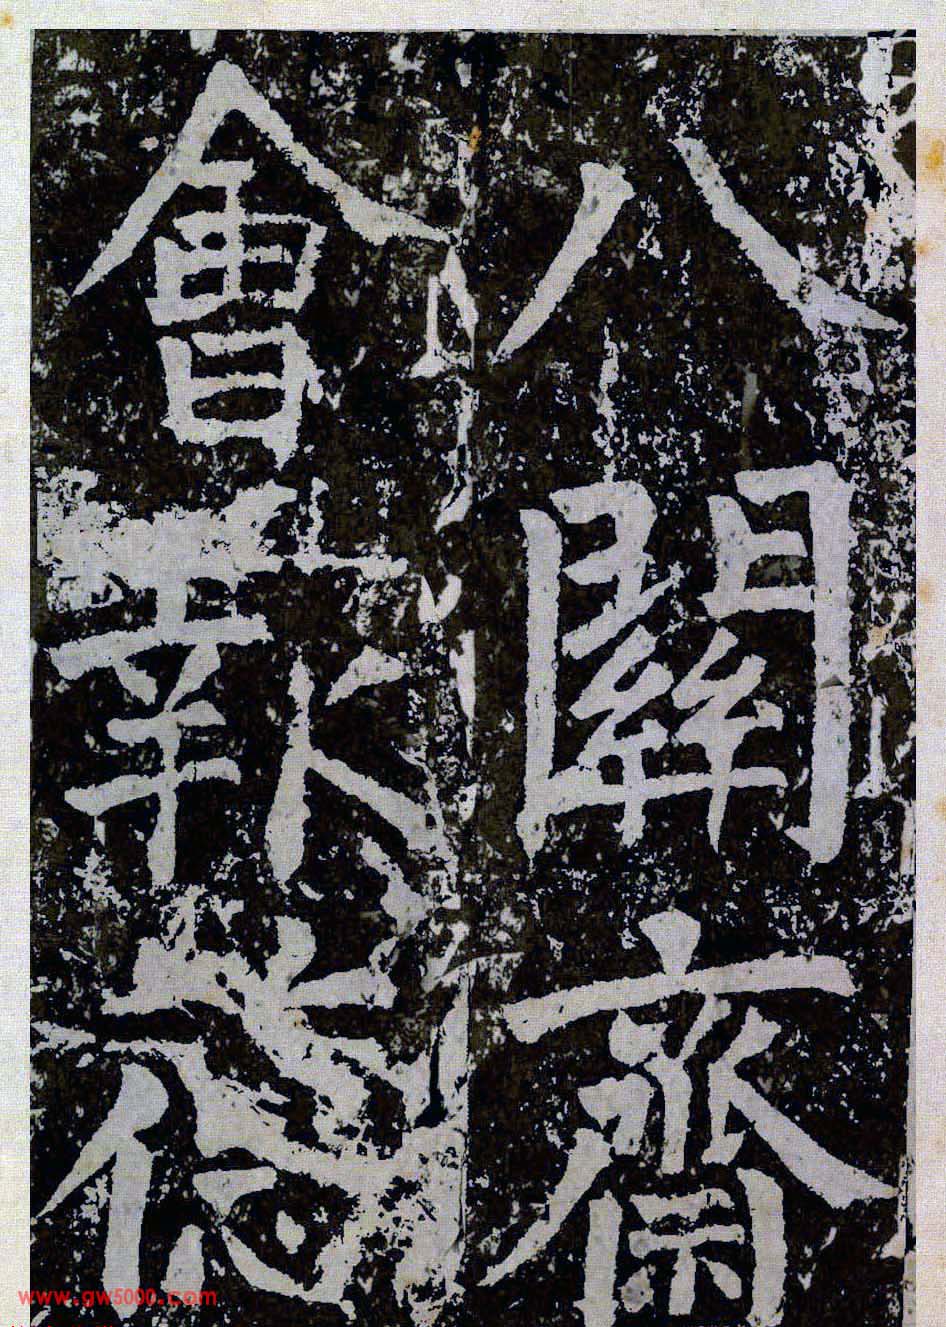 八關齋
會報德
www.gw5000.com